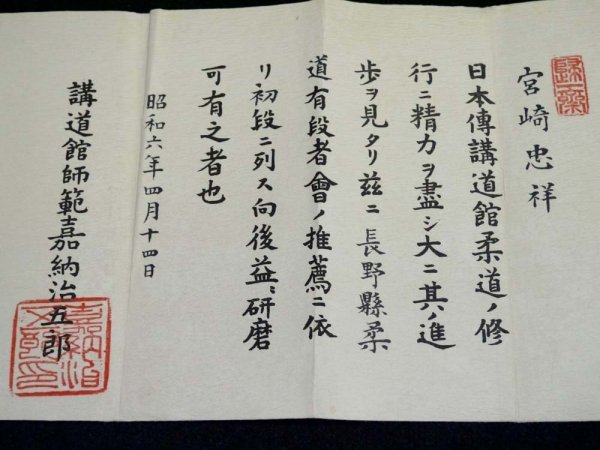 宮崎忠祥
日本傳講道館柔道ノ修
行ニ精力ヲ盡シ大ニ其ノ進
歩ヲ見タリ茲ニ長野縣柔
道有段者會ノ推薦ニ依
リ初段ニ列ス向後益〻研磨
可有之者也
昭和六年四月十四日
講道館師範嘉納治五郎